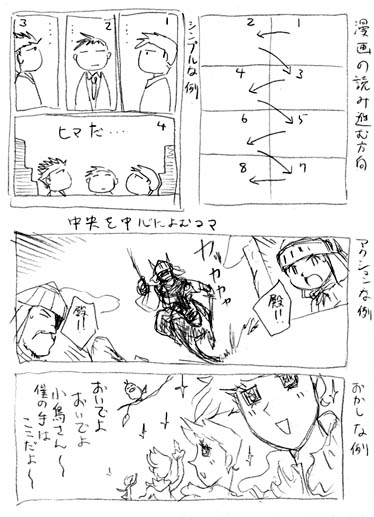 漫画の読み進む方向
1
2
3
4
5
6
7
8
シンプルな例
1
2
3
4
ヒマだ…‥
中央を中心によむコマ
アクションな例
殿!!
ガャャャャ
殿!!
おかしな例
おいでよ
おいでよ
小鳥さん〜
僕の手は
ここだよ〜